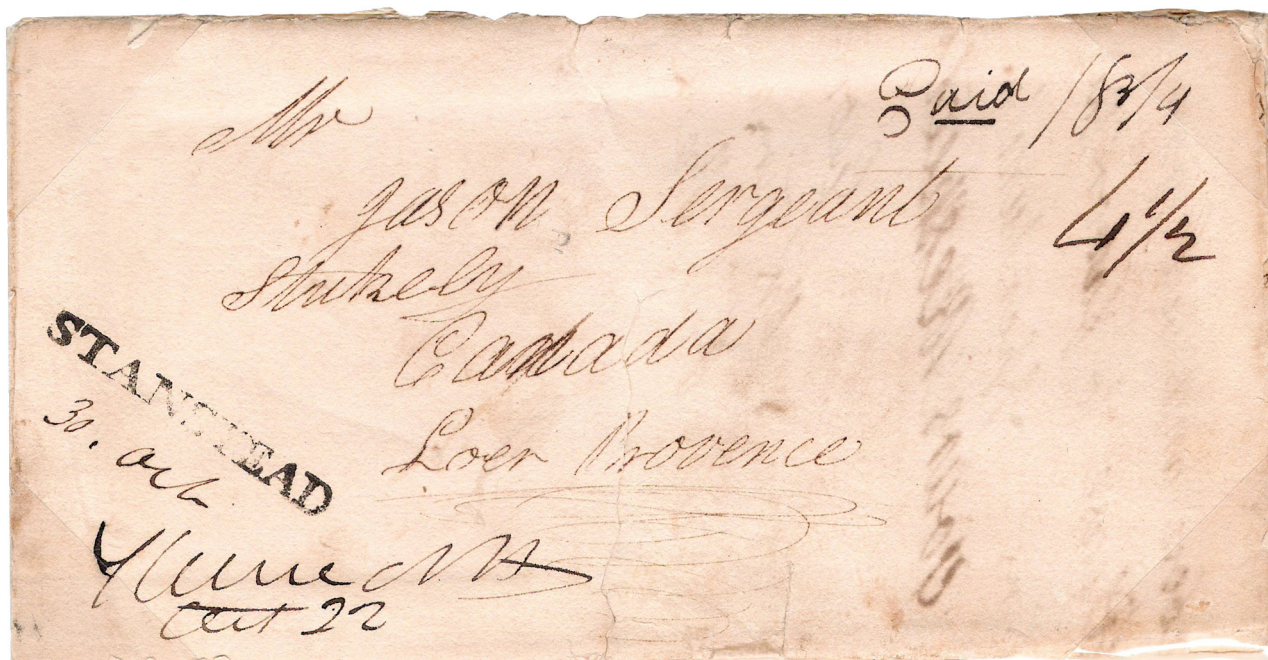 Paid 18 3/4
Mr
Jason Sergeant
4 1/2
Stukely
Canada
Loer Provence
STANSTEAD
30. Oct
Keene NH
Oct 22